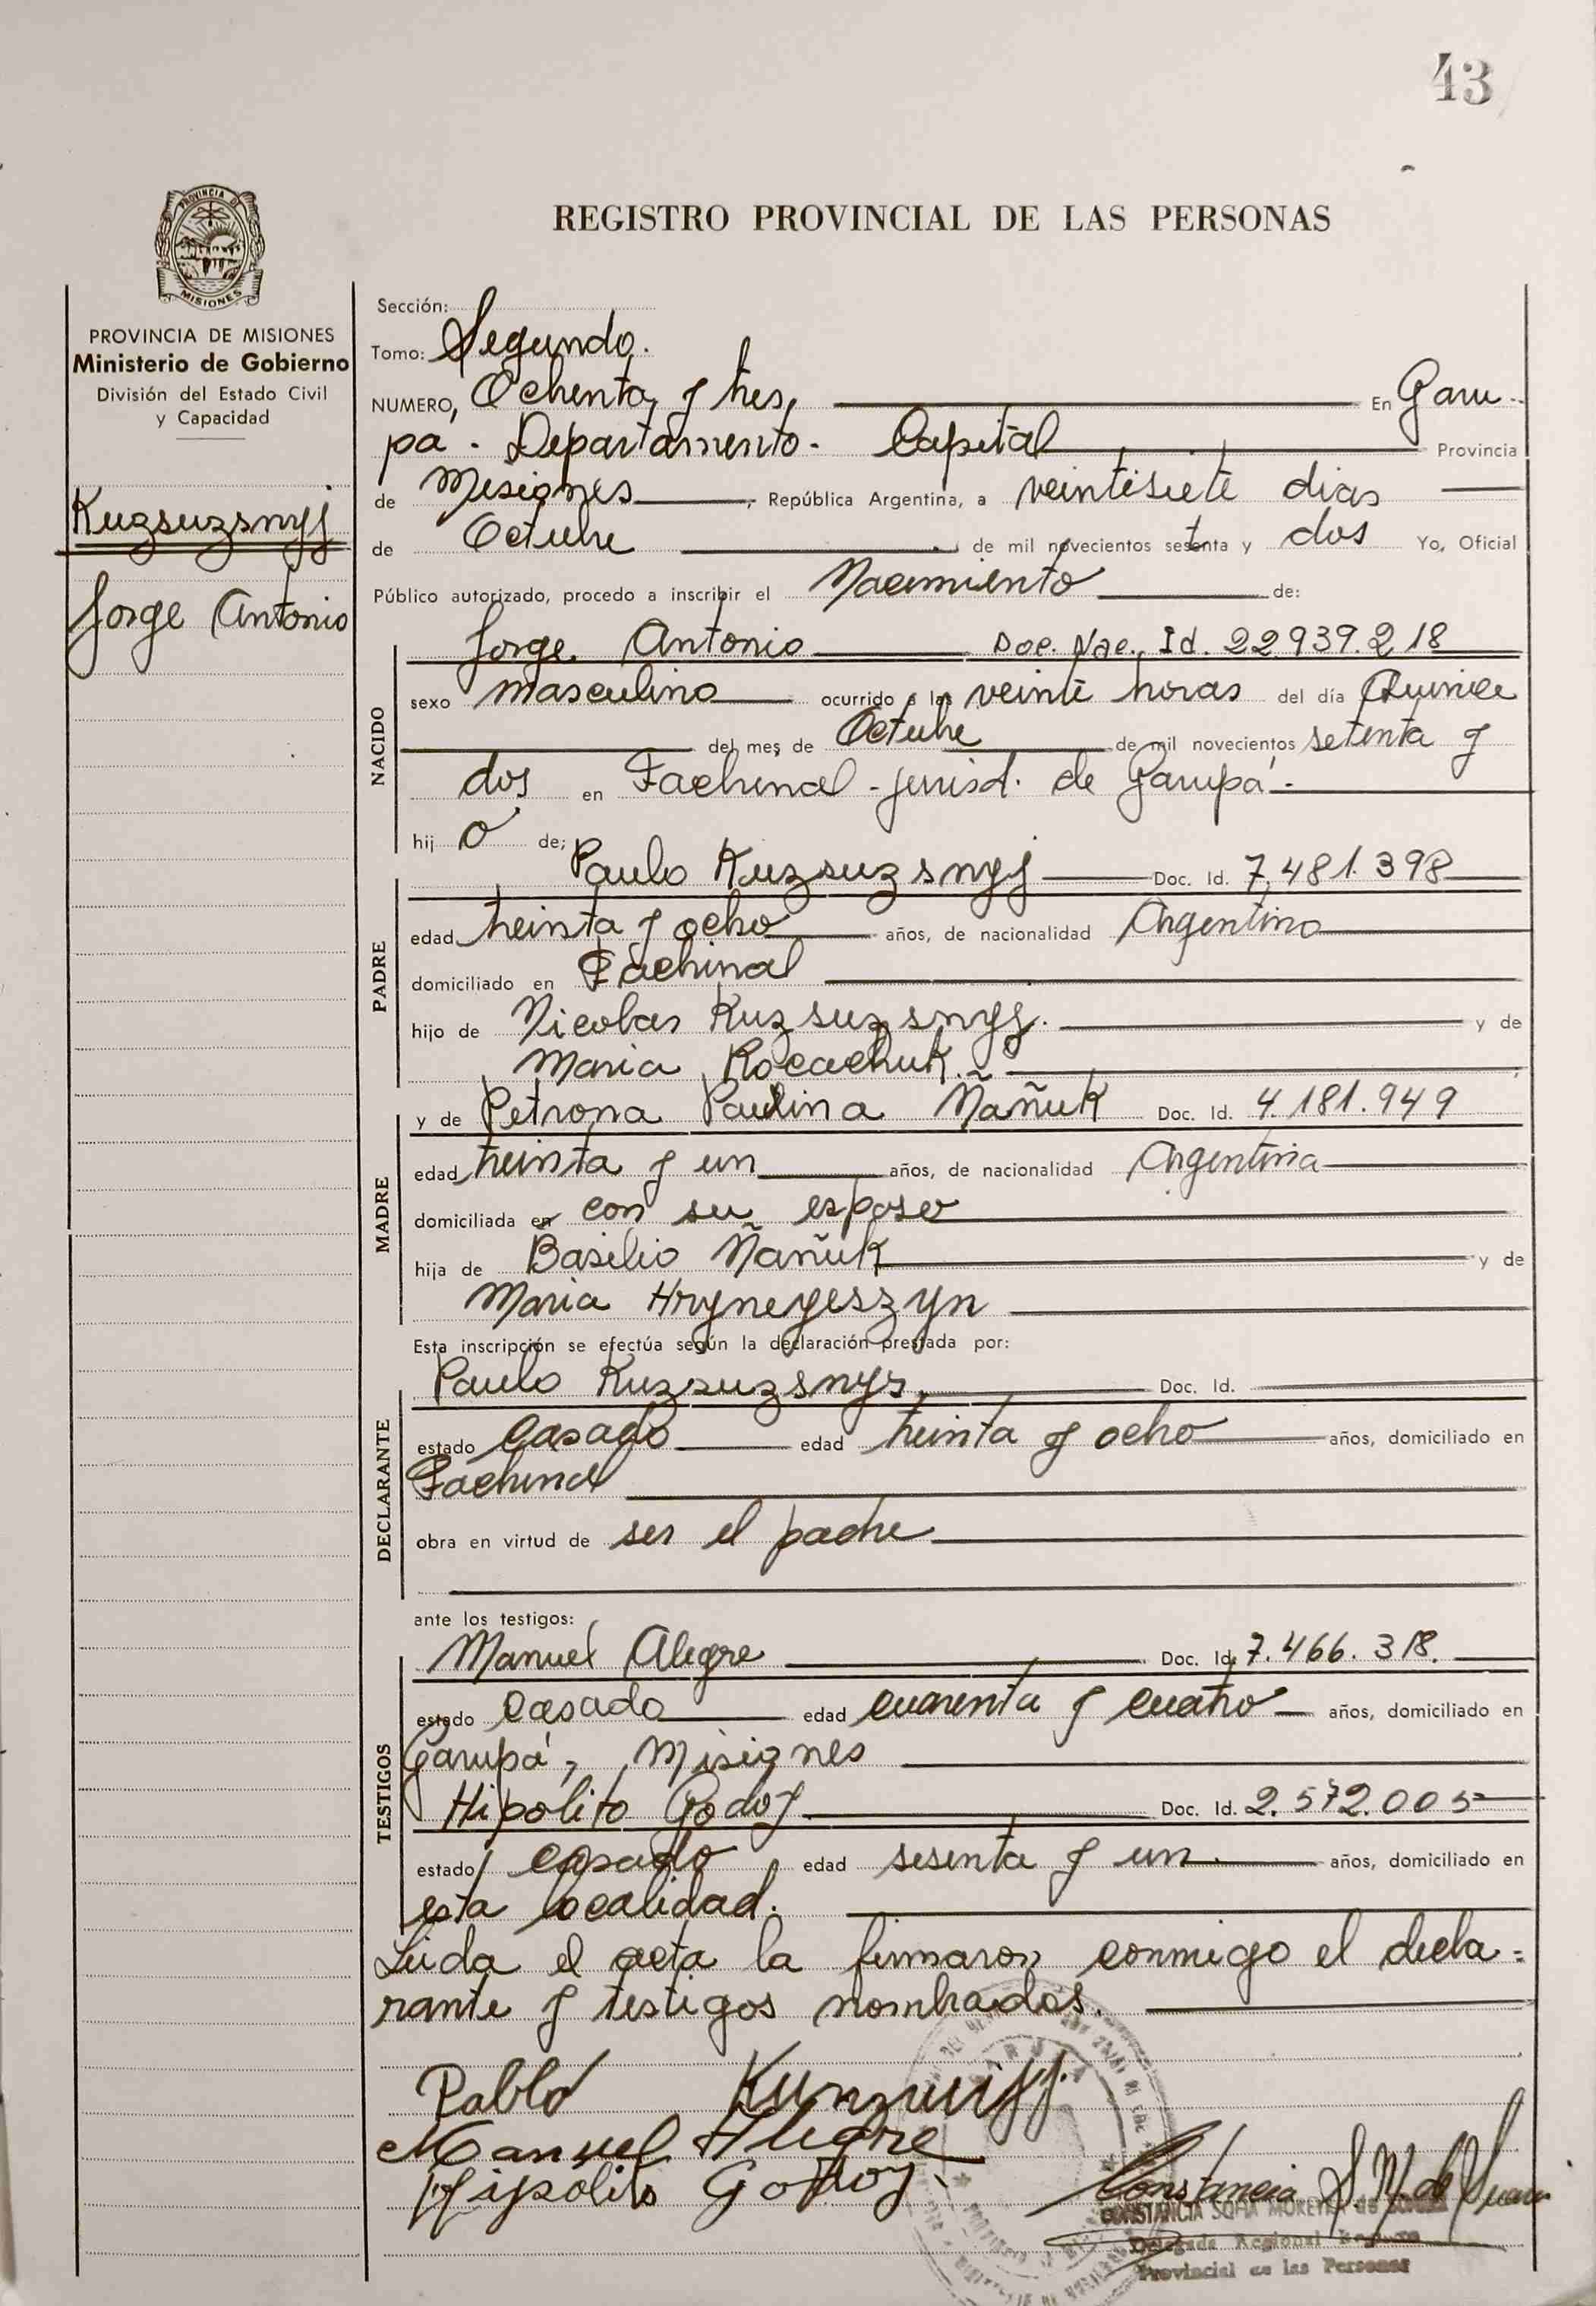 43
REGISTRO PROVINCIAL DE LAS PERSONAS
PROVINCIA DE
MISIONES
PROVINCIA DE MISIONES
Ministerio de Gobierno
División del Estado Civil
y Capacidad
Kuzsuzsnyj
Jorge Antonio
Sección:
Tomo: Segundo.
NUMERO, Ochenta y tres, En Garu-
pá - Departamento - Capital Provincia
de Misiones, República Argentina, a veintisiete dias
de Octubre de mil novecientos setenta y dos Yo, Oficial
Público autorizado, procedo a inscribir el Nacimiento de:
NACIDO
Jorge Antonio Doc. Nac. Id. 22.939.218
sexo masculino ocurrido a las veinte horas del día Quince
del mes de Octubre de mil novecientos setenta y
dos en Fachinal - jurisd. de Garupá -
hij o de;
PADRE
Paulo Kuzsuzsnyj Doc. Id. 7.481.398
edad treinta y ocho años, de nacionalidad Argentino
domiciliado en Fachinal
hijo de Nicolas Kuzsuzsnyj. y de
Maria Kocachuk.
MADRE
y de Petrona Paulina Ñañuk Doc. Id. 4.181.949
edad treinta y un años, de nacionalidad Argentina
domiciliada en con su esposo
hija de Basilio Ñañuk y de
Maria Hryneyeszyn
Esta inscripción se efectúa según la declaración prestada por:
DECLARANTE
Paulo Kuzsuzsnyj. Doc. Id.
estado casado edad treinta y ocho años, domiciliado en
Fachinal
obra en virtud de ser el padre
ante los testigos:
TESTIGOS
Manuel Alegre Doc. Id. 7.466.318.
estado casado edad cuarenta y cuatro años, domiciliado en
Garupá, Misiones
Hipolito Godoy Doc. Id. 2.572.005
estado casado edad sesenta y un años, domiciliado en
esta localidad.
Leida el acta la firmaron conmigo el decla=
rante y testigos nombrados.
Pablo
Manuel Alegre
Hipolito Godoy.
Constancia S. M. de
CONSTANCIA SOFIA MOREYRA de
Delegada Regional Registro
Provincial de las Personas